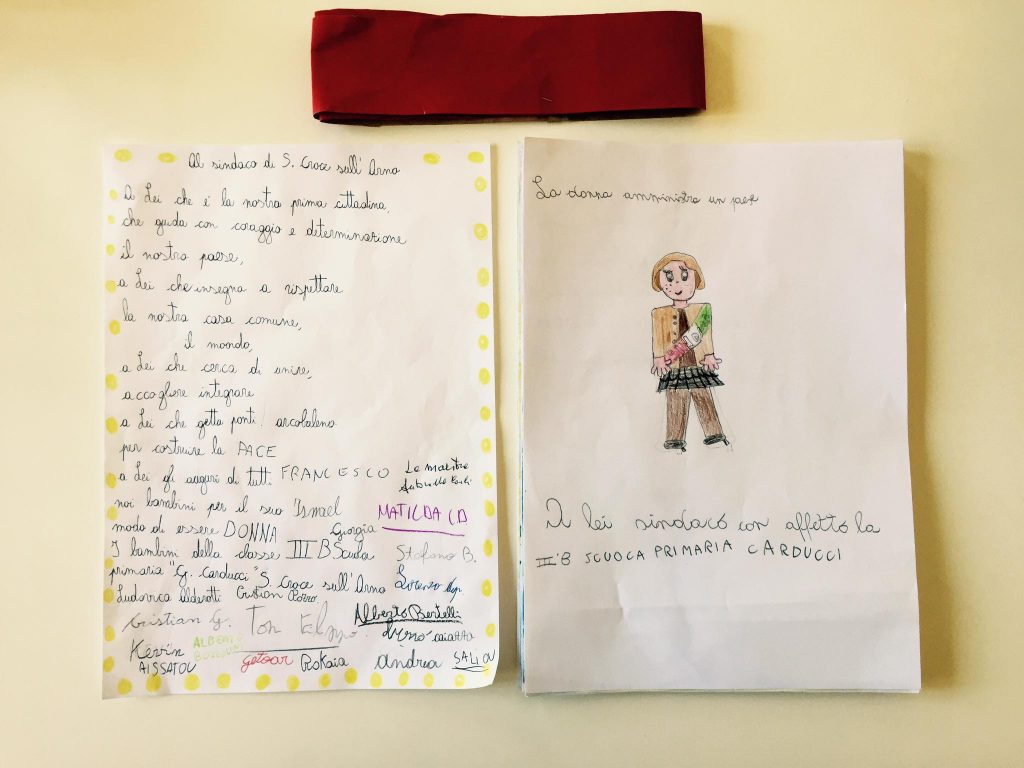 Al sindaco di S. Croce sull'Arno
A Lei che è la nostra prima cittadina,
che guida con coraggio e determinazione
il nostro paese,
a Lei che insegna a rispettare
la nostra casa comune,
il mondo,
a Lei che cerca di unire,
accogliere integrare
a Lei che getta ponti arcobaleno
per costruire la PACE
a Lei gli auguri di tutti FRANCESCO La maestra
noi bambini per il suo Ismael MATILDA
modo di essere DONNA Giorgia
I bambini della classe III B Scuola Stefano B.
primaria "G. Carducci" S. Croce sull'Arno Lorenzo
Ludovica Alderotti Cristian
Cristian G. Tom Alberto Bertelli
Kevin ALBERTO
AISSATOU getoar Rokaia Andrea SALIOU
La donna amministra un paese
A lei sindaco con affetto la
III°B SCUOCA PRIMARIA CARDUCCI